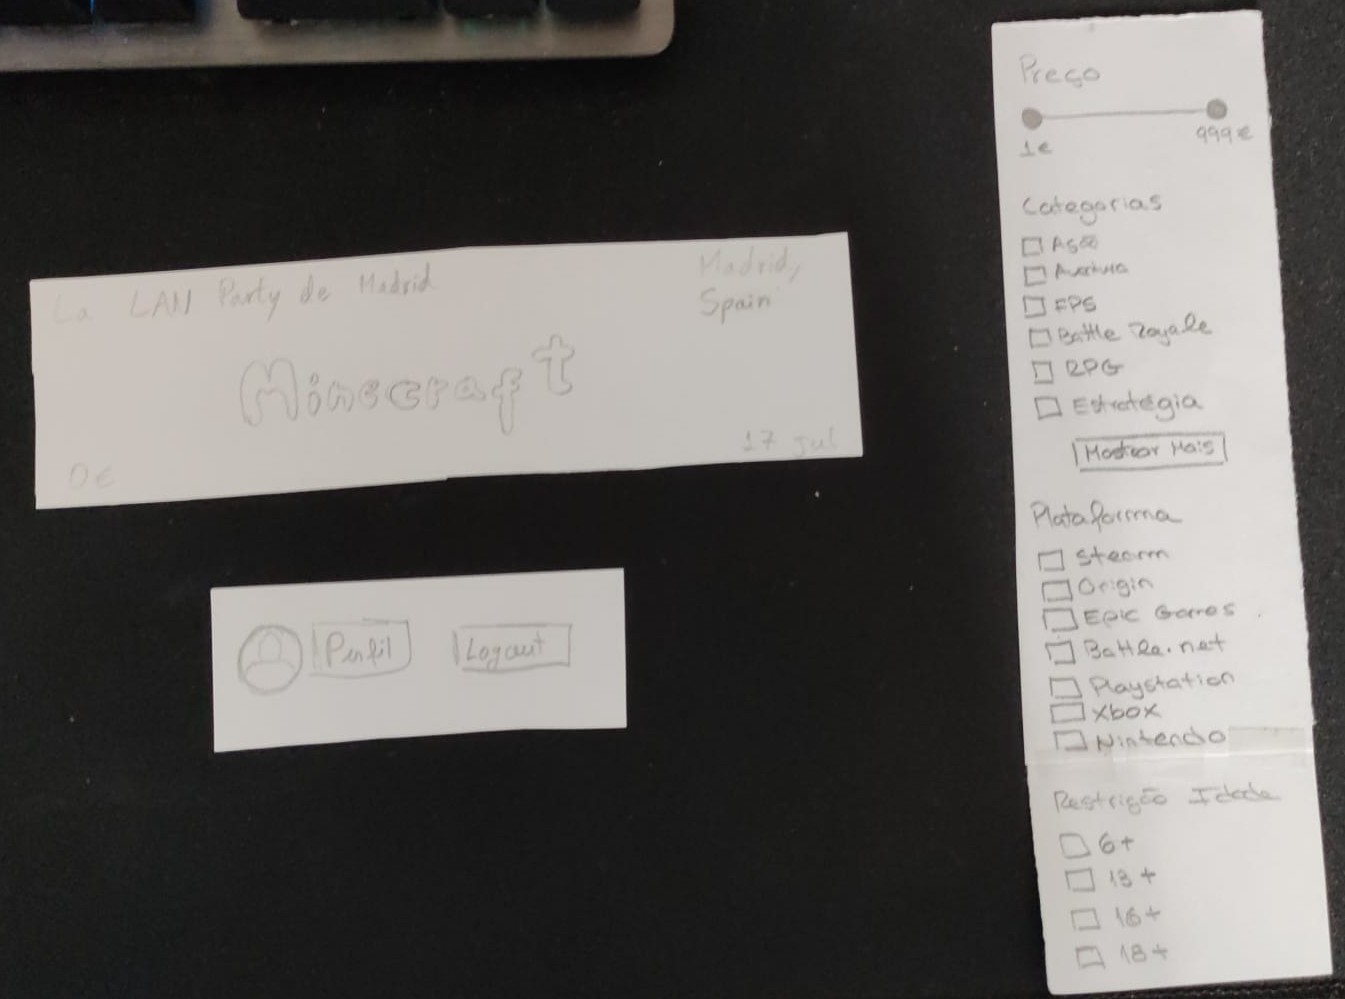 La LAN Party de Madrid
Madrid,
Spain
Minecraft
0€
17 jul
Perfil
Logout
Preço
1€
999€
Categorias
Ação
Aventura
FPS
Battle Royale
RPG
Estratégia
Mostrar Mais
Plataforma
Steam
Origin
Epic Games
Battle.net
Playstation
Xbox
Nintendo
Restrição Idade
6+
13+
16+
18+